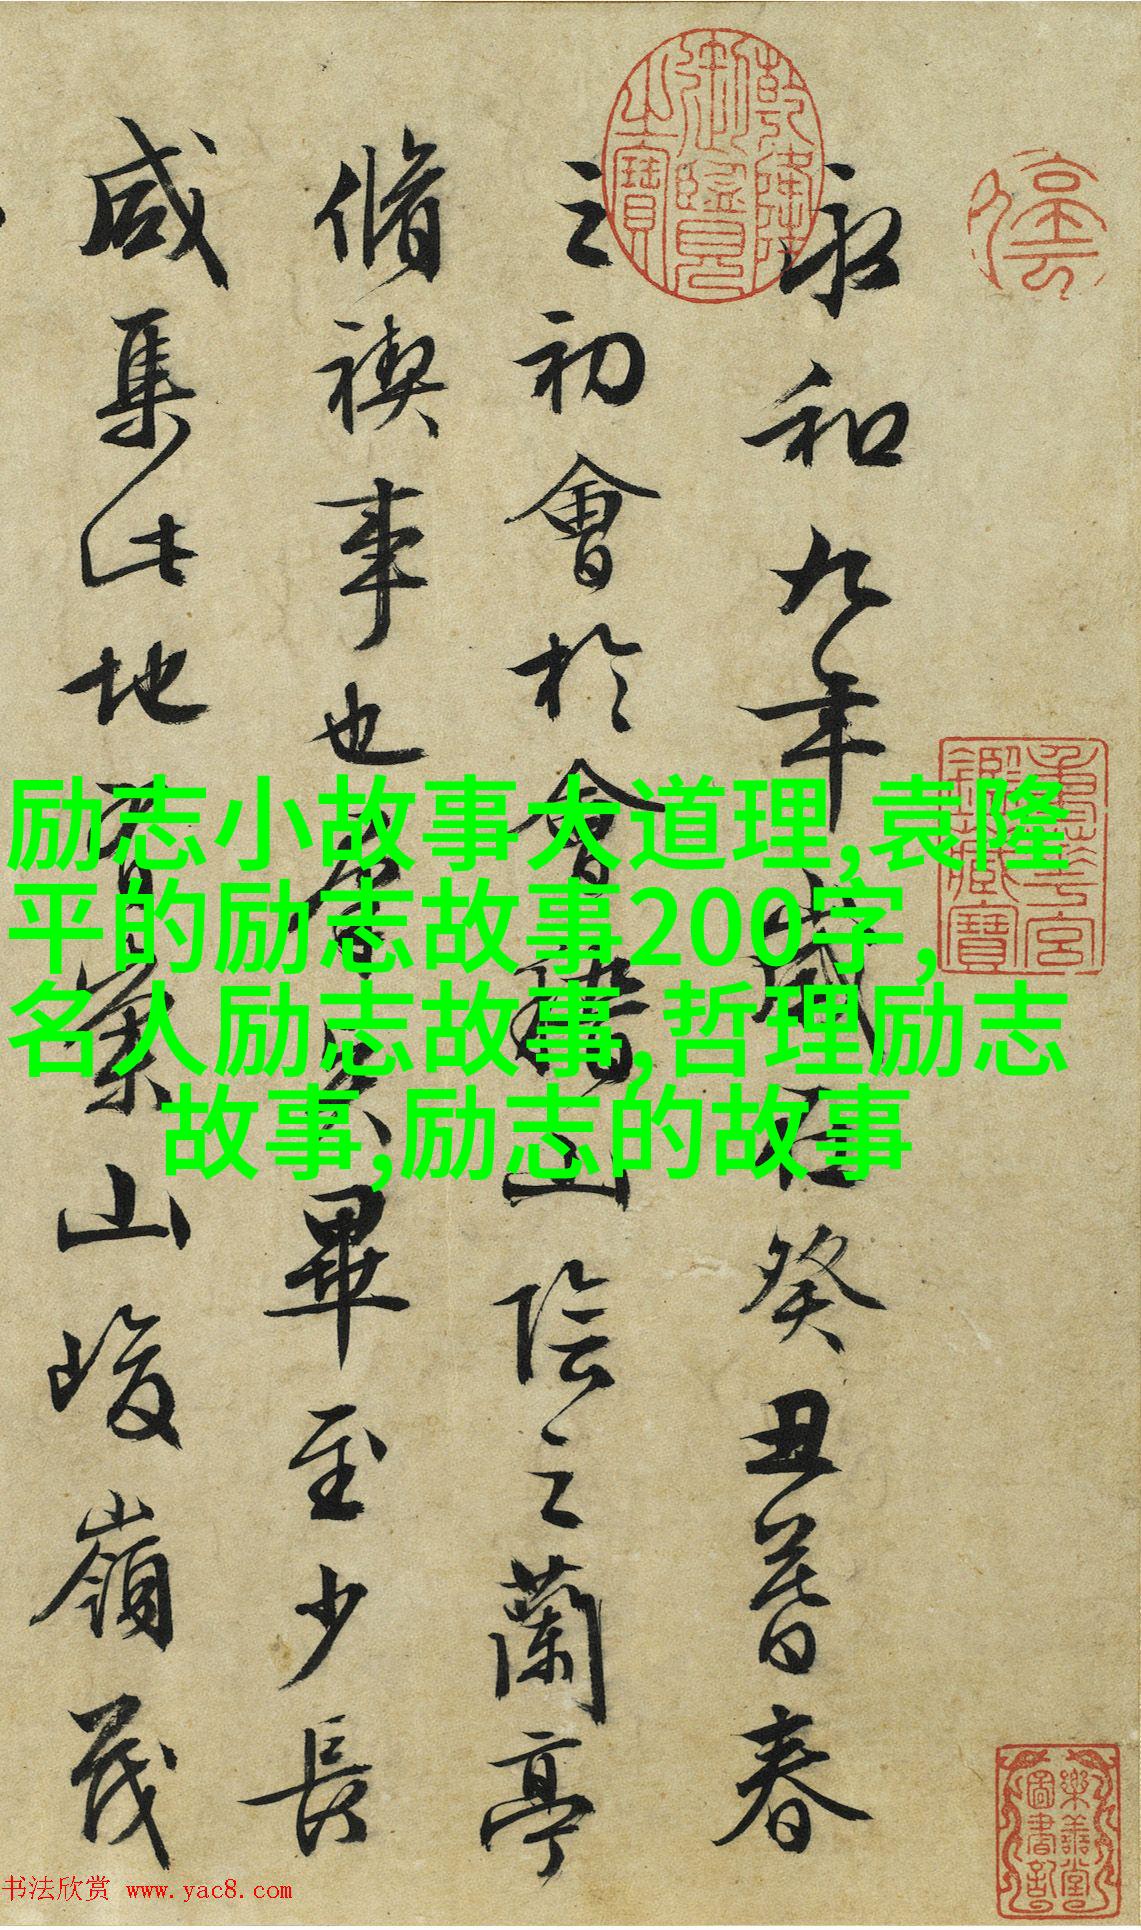 永和九年歲在癸丑暮春
之初會於會稽山陰之蘭亭
脩禊事也羣賢畢至少長
咸集此地有崇山峻嶺茂
乾隆御覽之寶
重華宮鑑藏寶
樂善堂圖書記
励志小故事大道理,袁隆
平的励志故事200字,
名人励志故事,哲理励志
故事,励志的故事
书法欣赏 www.yac8.com